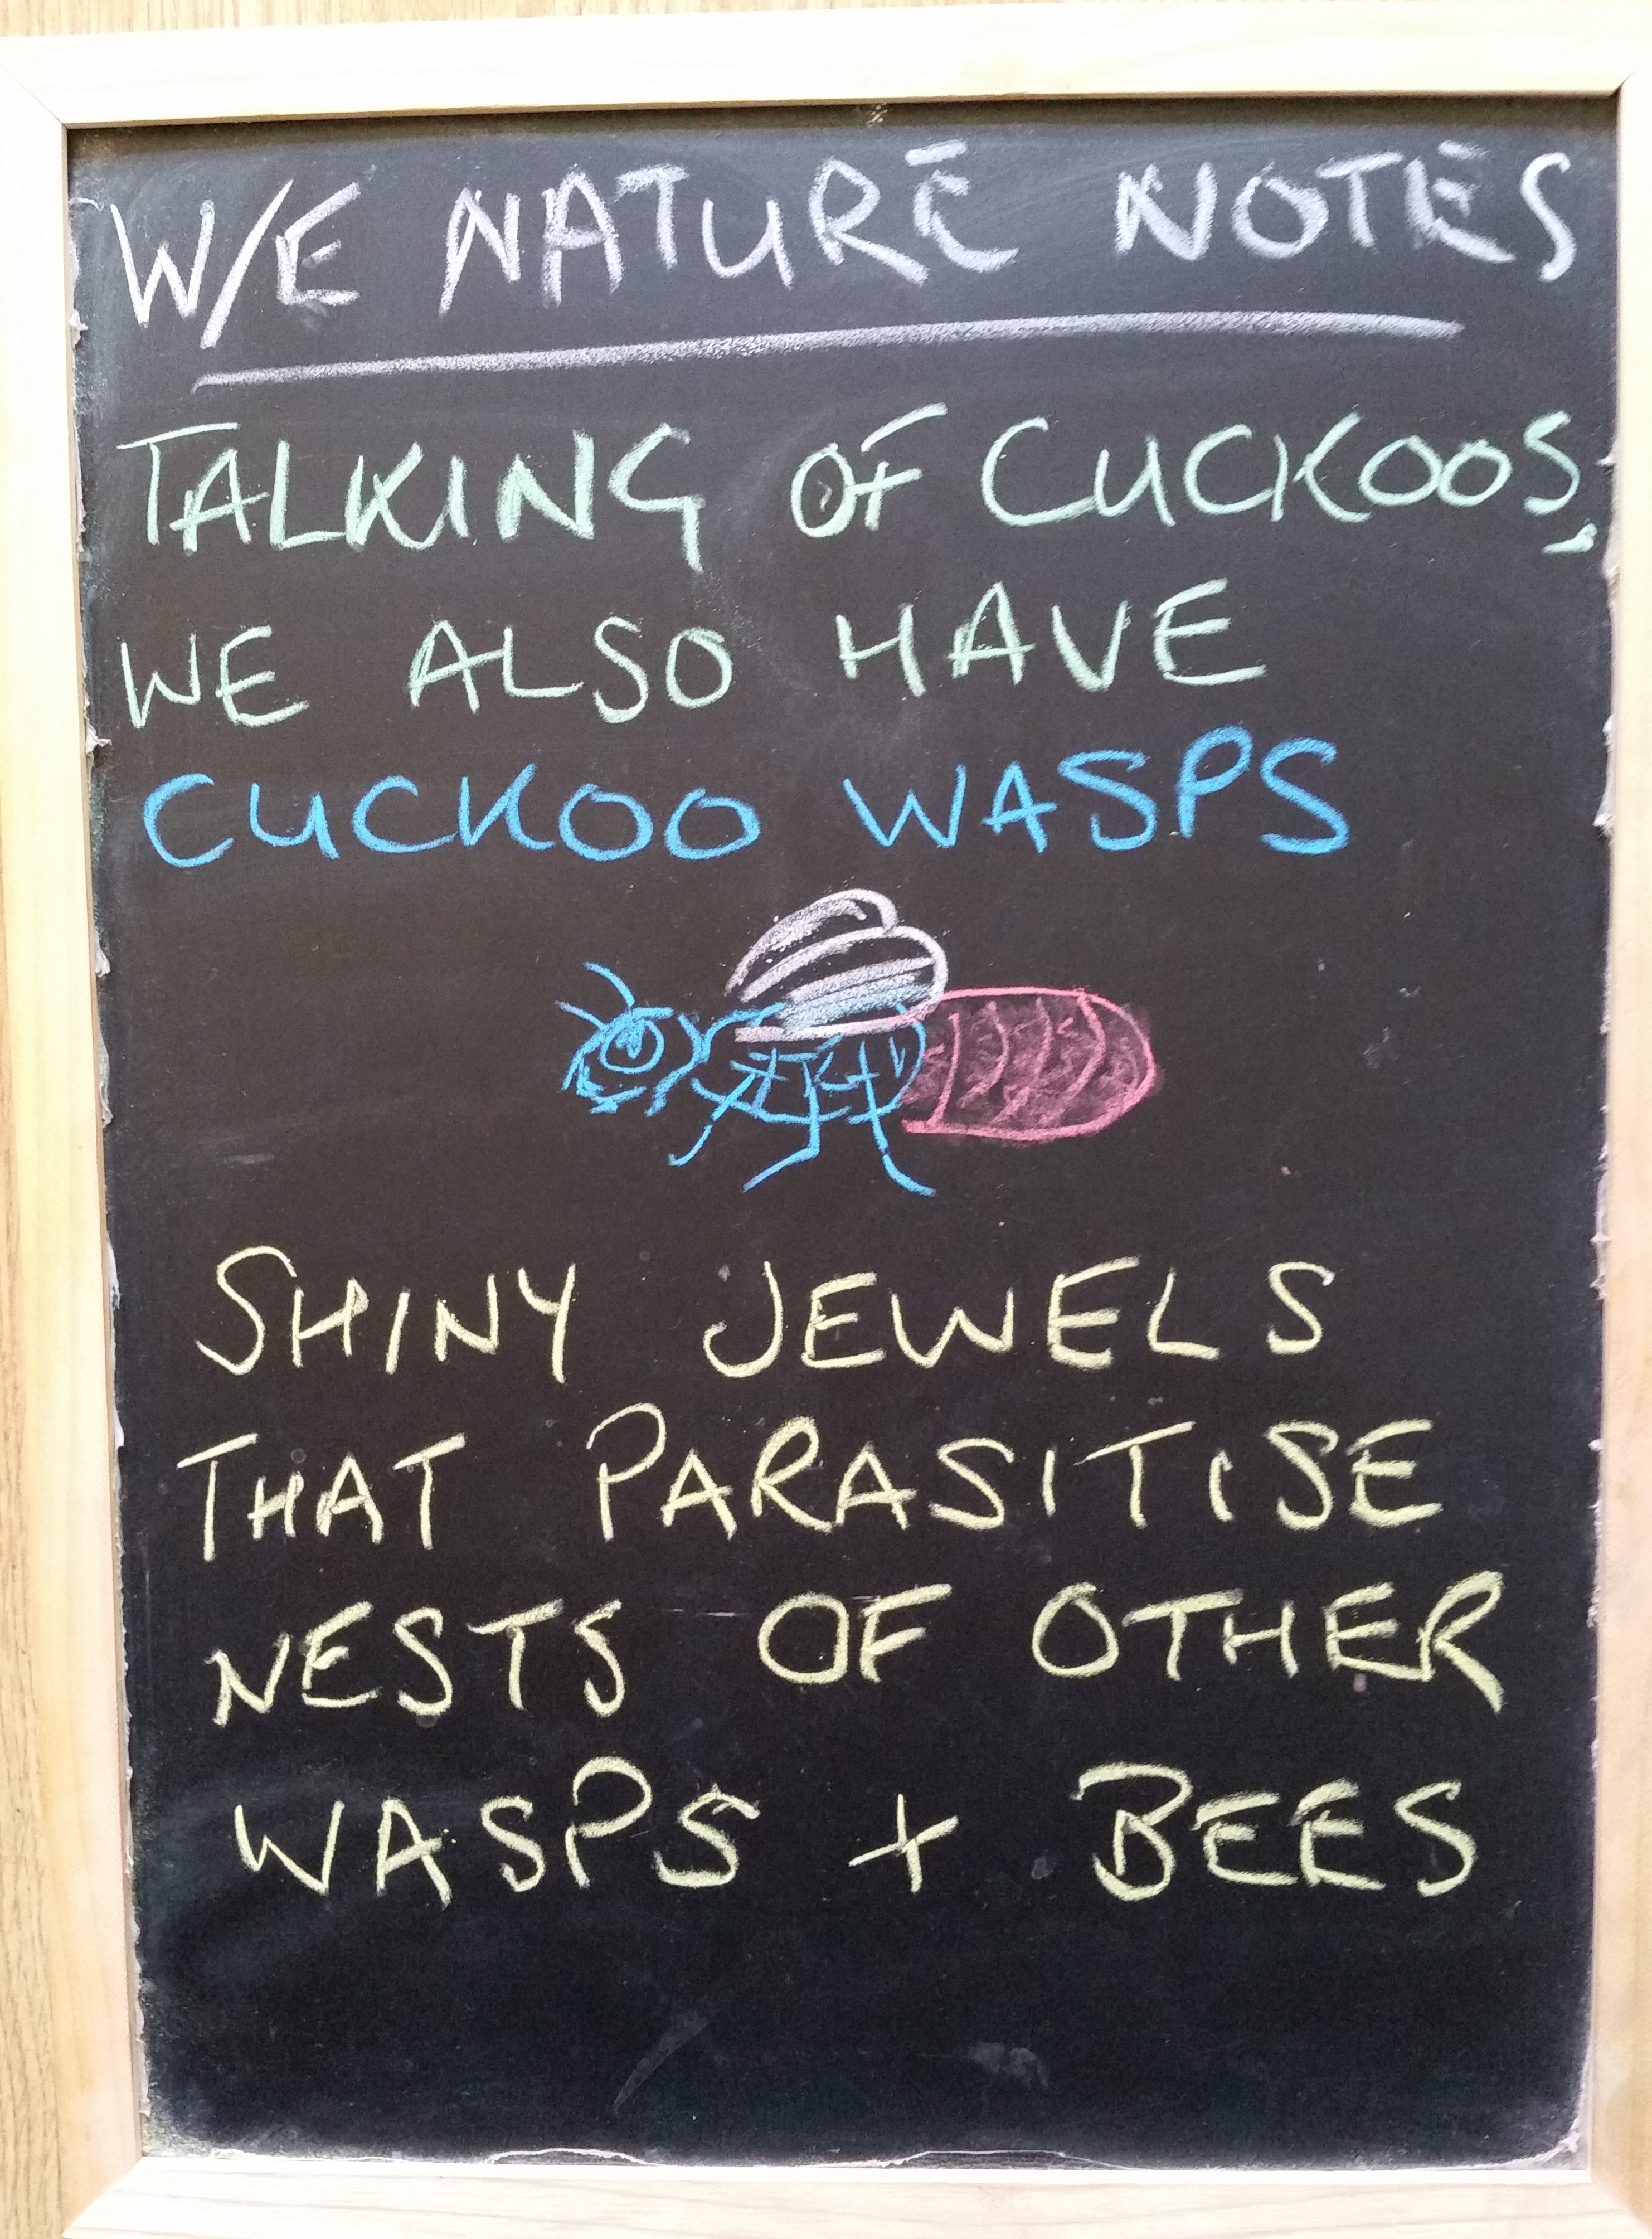 W/E NATURE NOTES
TALKING OF CUCKOOS,
WE ALSO HAVE
CUCKOO WASPS
SHINY JEWELS
THAT PARASITISE
NESTS OF OTHER
WASPS + BEES